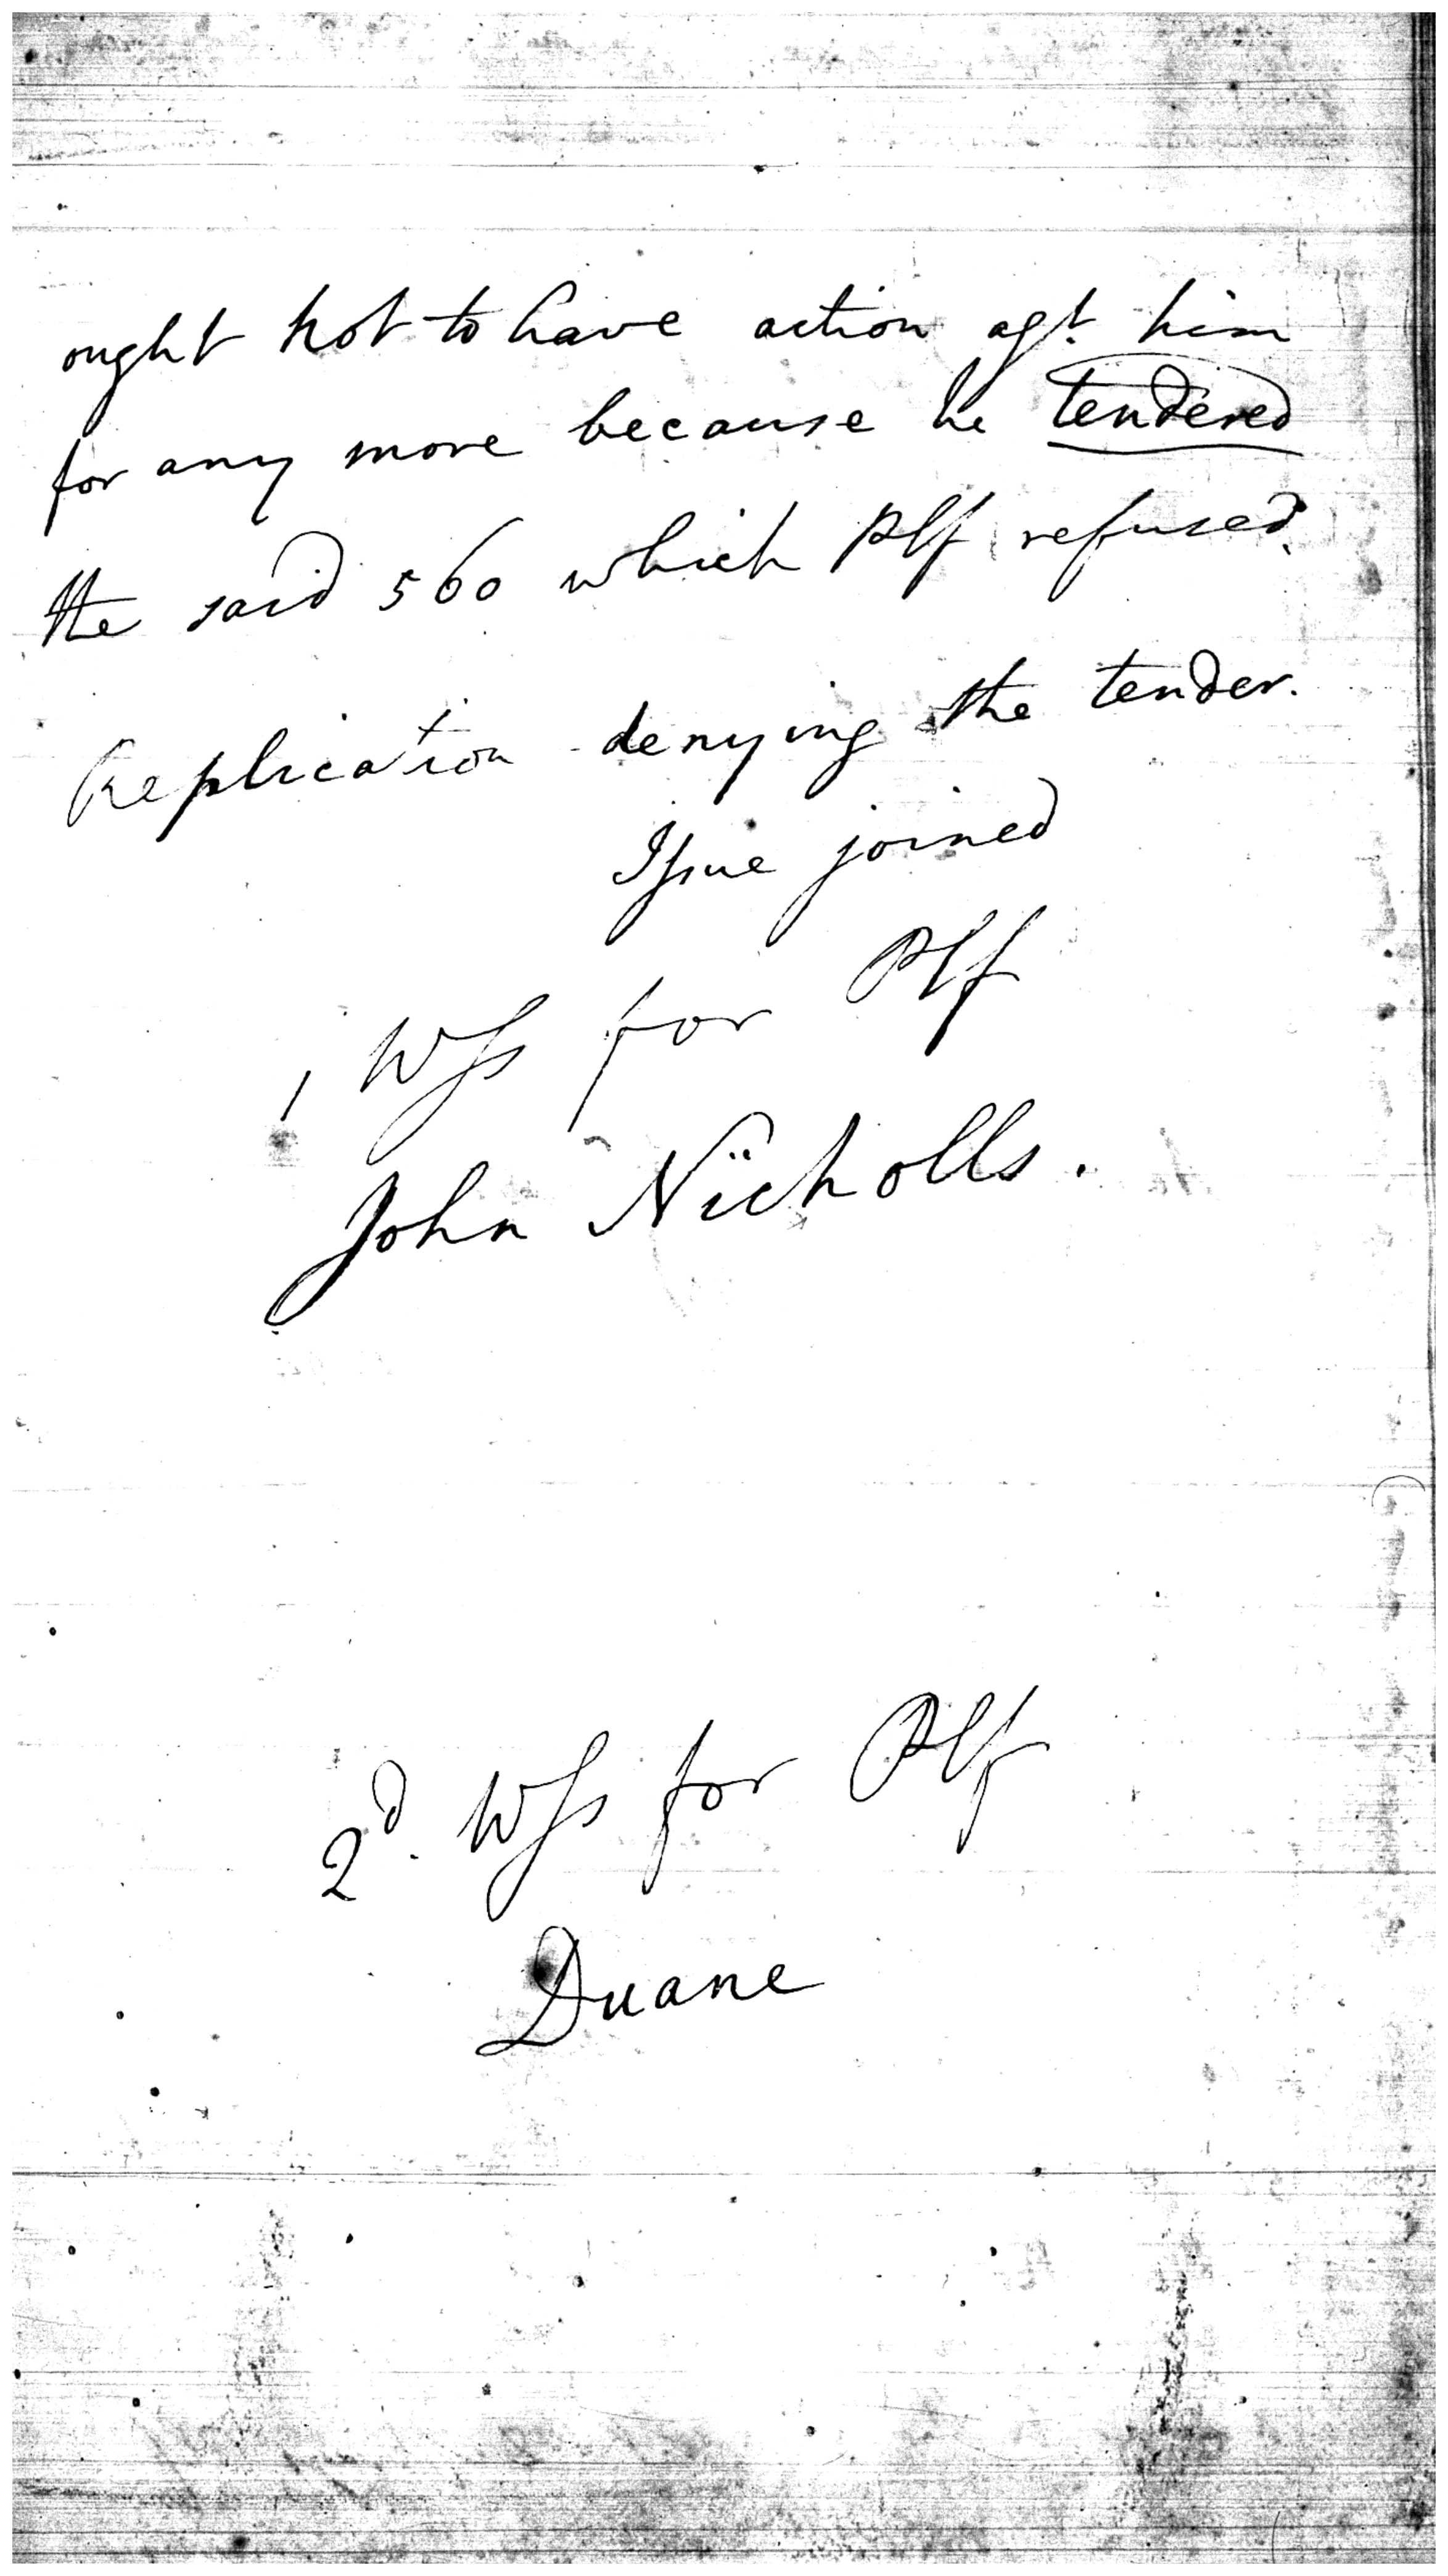 ought not to have action agt. him
for any more because he tendered
the said 560 which Plf refused.
Replication denying the tender.
Issue joined
1 Wss for Plf
John Nicholls.
2d. Wss for Plf
Duane